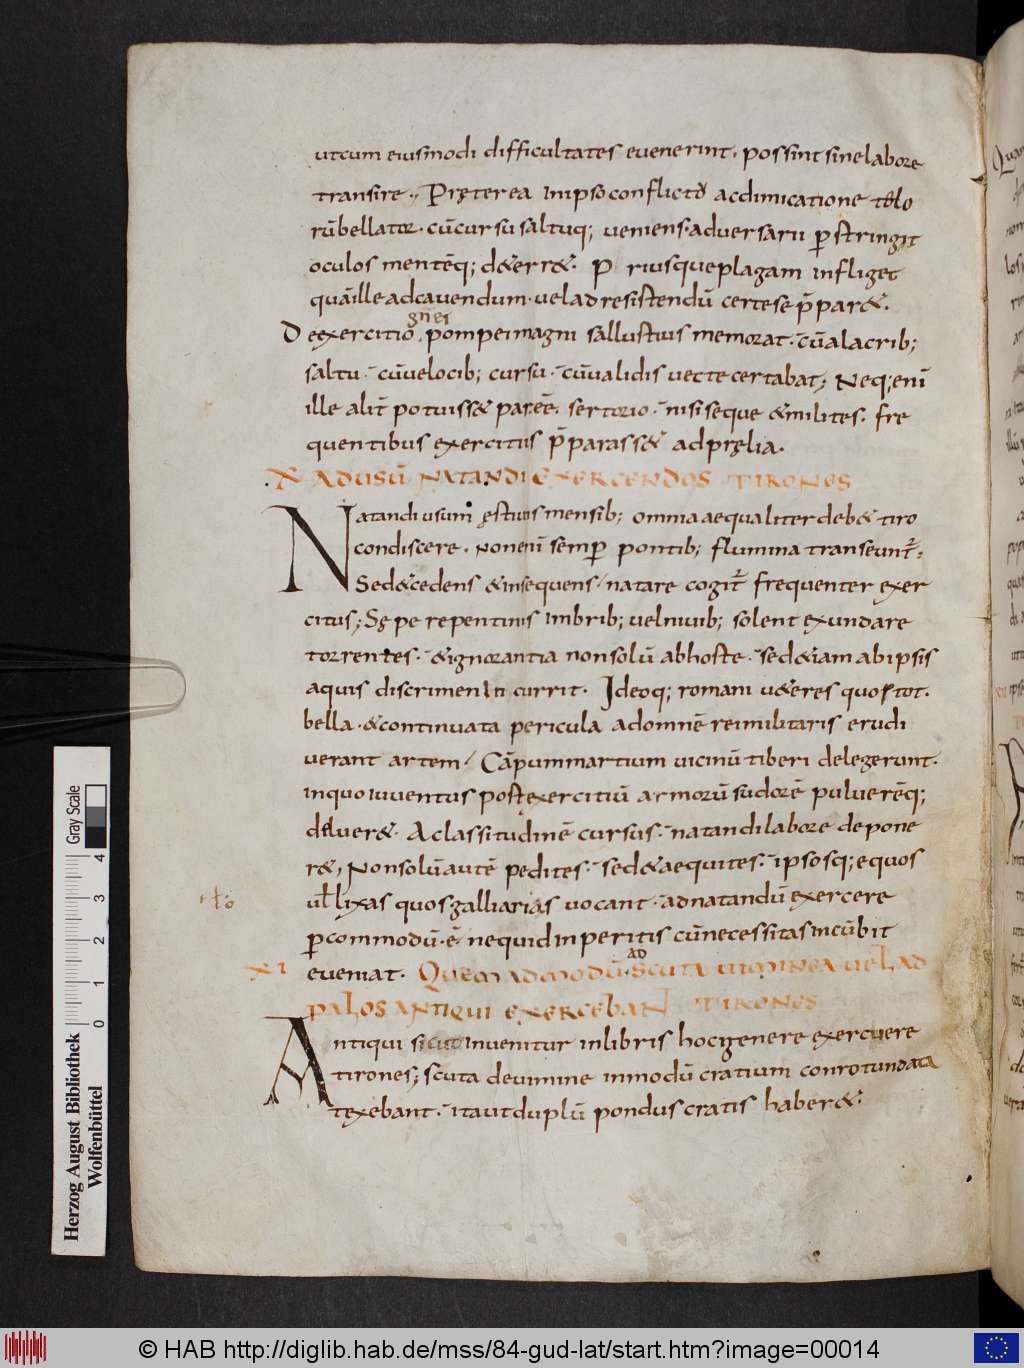 utcum eiusmodi difficultates euenerint. possint sine labore
transire. Pręterea in ipso conflictu ac dimicatione telo
rū bellator. cū cursu saltuq; ueniens. aduersarii p̄stringit
oculos mentēq; det&err&. P riusque plagam infliget
quā ille ad cauendum. uel ad resistendū certe se p̄par&.
gn̄ei
De exercitio. pompei magni sallustius memorat. cū alacrib;
saltu. cū uelocib; cursu. cū ualidis uecte certabat; Neq; enī
ille alit̄ potuiss& par eē. sertorio. nisi seque & milites. fre
quentibus exercitiis p̄parass& ad pręlia.
.X AD USŪ NATANDI EXERCENDOS TIRONES
Natandi usum ęstiuis mensib; omnia aequaliter deb& tiro
condiscere. Non enī semp̄ pontib; flumina transeunt̄.
Sed & cedens & insequens natare cogit̄ frequenter exer
citus; Sępe repentinis imbrib; uel niuib; solent exundare
torrentes. & ignorantia non solū ab hoste. sed &iam ab ipsis
aquis discrimen incurrit. Ideoq; romani u&eres quos tot.
bella. & continuata pericula ad omnē rei militaris erudi
uerant artem. Cāpum martium uicinū tiberi delegerunt.
in quo iuuentus post exercitiū armorū sudorē puluerēq;
diluer&. Ac lassitudinē cursus. natandi labore depone
r&; Non solū autē pedites. sed & aequites. ipsosq; equos
uł lixas quos galliarias uocant. ad natandū exercere
p̄commodū. ē. ne quid inperitis cū necessitas incūbit
AD
XI eueniat. QUEMADMODŪ SCUTA UIMINEA UEL AD
PALOS ANTIQUI EXERCEBANT TIRONES
Antiqui sicut inuenitur in libris hoc genere exercuere
tirones; scuta de uimine in modū cratium conrotundata
texebant. ita ut duplū pondus cratis haber&.
Gray Scale
0 1 2 3 4
Herzog August Bibliothek
Wolfenbüttel
© HAB http://diglib.hab.de/mss/84-gud-lat/start.htm?image=00014